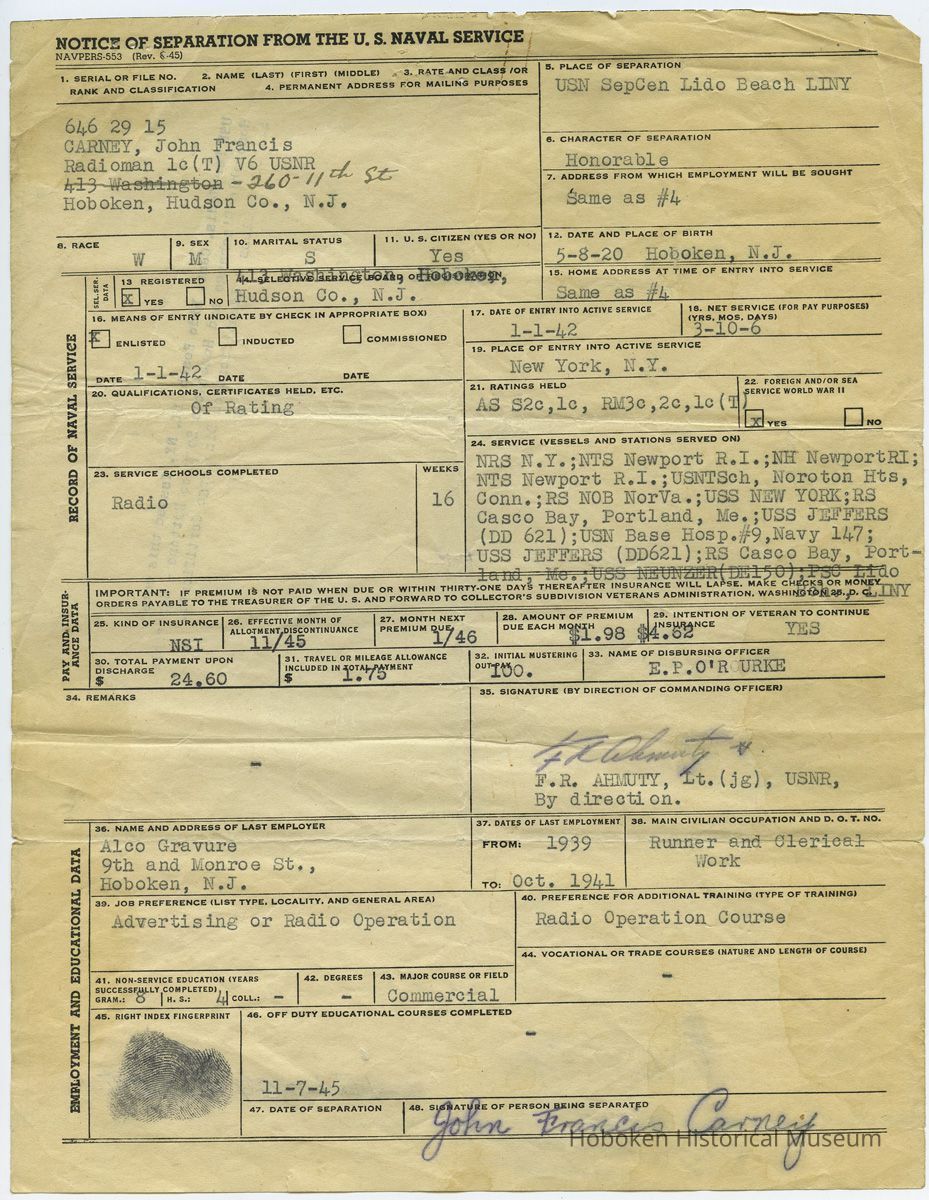 NOTICE OF SEPARATION FROM THE U. S. NAVAL SERVICE
NAVPERS-553 (Rev. 8-45)
1. SERIAL OR FILE NO. 2. NAME (LAST) (FIRST) (MIDDLE) 3. RATE AND CLASS/OR
RANK AND CLASSIFICATION 4. PERMANENT ADDRESS FOR MAILING PURPOSES
646 29 15
CARNEY, John Francis
Radioman 1c(T) V6 USNR
413 Washington - 260-11th St
Hoboken, Hudson Co., N.J.
5. PLACE OF SEPARATION
USN SepCen Lido Beach LINY
6. CHARACTER OF SEPARATION
Honorable
7. ADDRESS FROM WHICH EMPLOYMENT WILL BE SOUGHT
Same as #4
8. RACE
W
9. SEX
M
10. MARITAL STATUS
S
11. U. S. CITIZEN (YES OR NO)
Yes
12. DATE AND PLACE OF BIRTH
5-8-20 Hoboken, N.J.
SEL. SER. DATA
13 REGISTERED
X YES NO
14. SELECTIVE SERVICE BOARD OF REGISTRATION
413 Washington, Hoboken,
Hudson Co., N.J.
15. HOME ADDRESS AT TIME OF ENTRY INTO SERVICE
Same as #4
RECORD OF NAVAL SERVICE
16. MEANS OF ENTRY (INDICATE BY CHECK IN APPROPRIATE BOX)
X ENLISTED INDUCTED COMMISSIONED
DATE 1-1-42 DATE DATE
17. DATE OF ENTRY INTO ACTIVE SERVICE
1-1-42
18. NET SERVICE (FOR PAY PURPOSES)
(YRS, MOS, DAYS)
3-10-6
19. PLACE OF ENTRY INTO ACTIVE SERVICE
New York, N.Y.
20. QUALIFICATIONS, CERTIFICATES HELD, ETC.
Of Rating
21. RATINGS HELD
AS S2c,1c, RM3c,2c,1c(T)
22. FOREIGN AND/OR SEA
SERVICE WORLD WAR II
X YES NO
23. SERVICE SCHOOLS COMPLETED
Radio
WEEKS
16
24. SERVICE (VESSELS AND STATIONS SERVED ON)
NRS N.Y.;NTS Newport R.I.;NH NewportRI;
NTS Newport R.I.;USNTSch, Noroton Hts,
Conn.;RS NOB NorVa.;USS NEW YORK;RS
Casco Bay, Portland, Me.;USS JEFFERS
(DD 621);USN Base Hosp.#9,Navy 147;
USS JEFFERS (DD621);RS Casco Bay, Port-
land, Me.;USS NEUNZER(DE150);PSC Lido
LINY
PAY AND INSURANCE DATA
IMPORTANT: IF PREMIUM IS NOT PAID WHEN DUE OR WITHIN THIRTY-ONE DAYS THEREAFTER INSURANCE WILL LAPSE. MAKE CHECKS OR MONEY
ORDERS PAYABLE TO THE TREASURER OF THE U. S. AND FORWARD TO COLLECTOR'S SUBDIVISION VETERANS ADMINISTRATION, WASHINGTON 25, D. C.
25. KIND OF INSURANCE
NSI
26. EFFECTIVE MONTH OF
ALLOTMENT DISCONTINUANCE
11/45
27. MONTH NEXT
PREMIUM DUE
1/46
28. AMOUNT OF PREMIUM
DUE EACH MONTH
$1.98 $4.62
29. INTENTION OF VETERAN TO CONTINUE
INSURANCE
YES
30. TOTAL PAYMENT UPON
DISCHARGE
$ 24.60
31. TRAVEL OR MILEAGE ALLOWANCE
INCLUDED IN TOTAL PAYMENT
$ 1.75
32. INITIAL MUSTERING
OUT PAY
100.
33. NAME OF DISBURSING OFFICER
E.P.O'ROURKE
34. REMARKS
-
35. SIGNATURE (BY DIRECTION OF COMMANDING OFFICER)
F R Ahmuty
F.R. AHMUTY, Lt.(jg), USNR,
By direction.
EMPLOYMENT AND EDUCATIONAL DATA
36. NAME AND ADDRESS OF LAST EMPLOYER
Alco Gravure
9th and Monroe St.,
Hoboken, N.J.
37. DATES OF LAST EMPLOYMENT
FROM: 1939
TO: Oct. 1941
38. MAIN CIVILIAN OCCUPATION AND D. O. T. NO.
Runner and Clerical
Work
39. JOB PREFERENCE (LIST TYPE, LOCALITY, AND GENERAL AREA)
Advertising or Radio Operation
40. PREFERENCE FOR ADDITIONAL TRAINING (TYPE OF TRAINING)
Radio Operation Course
41. NON-SERVICE EDUCATION (YEARS
SUCCESSFULLY COMPLETED)
GRAM.: 8 H. S.: 4 COLL.: -
42. DEGREES
-
43. MAJOR COURSE OR FIELD
Commercial
44. VOCATIONAL OR TRADE COURSES (NATURE AND LENGTH OF COURSE)
-
45. RIGHT INDEX FINGERPRINT
46. OFF DUTY EDUCATIONAL COURSES COMPLETED
-
11-7-45
47. DATE OF SEPARATION
48. SIGNATURE OF PERSON BEING SEPARATED
John Francis Carney
Hoboken Historical Museum